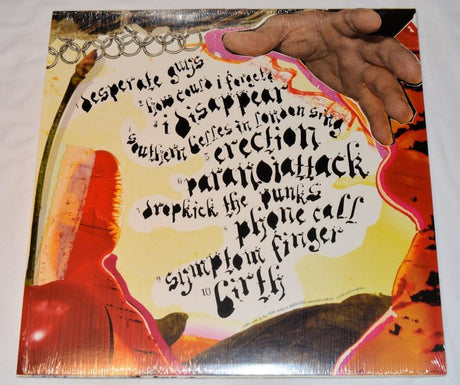 1 desperate guys
2 how could i forget?
3 i disappear
4 southern belles in london sing
5 erection
6 paranoiattack
7 dropkick the punks
8 phone call
9 symptom finger
10 birth